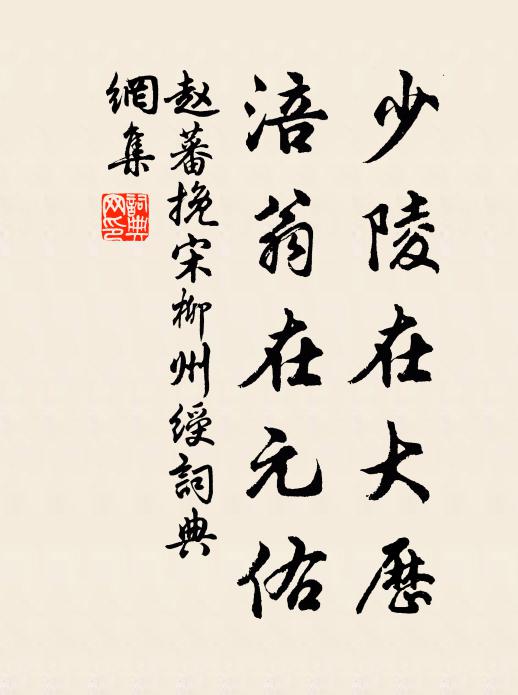 少陵在大歷
涪翁在元佑
趙蕃挽宋柳州綬詞典
網集
詞典
网印